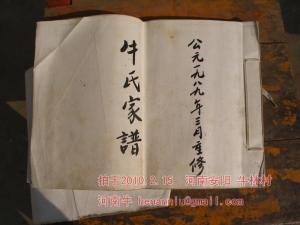 公元一九八九年三月重修
牛氏家譜
拍于2010.2.15 河南安阳 牛林村
河南牛 henanniu@yeah.net